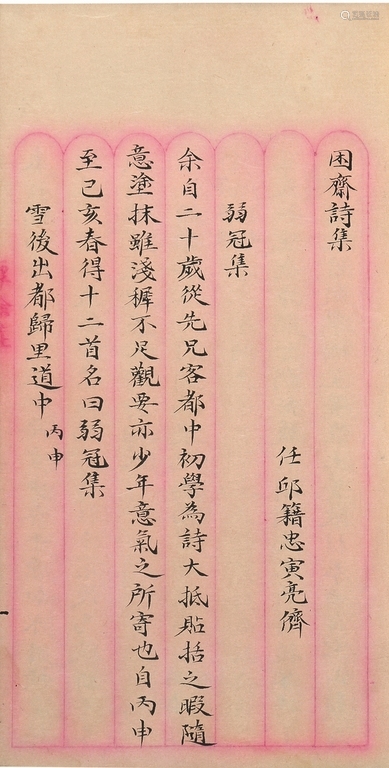 困齋詩集
任邱籍忠寅亮儕
弱冠集
余自二十歲從先兄客都中初學為詩大抵貼括之暇隨
意塗抹雖淺穉不足觀要亦少年意氣之所寄也自丙申
至己亥春得十二首名曰弱冠集
雪後出都歸里道中 丙申